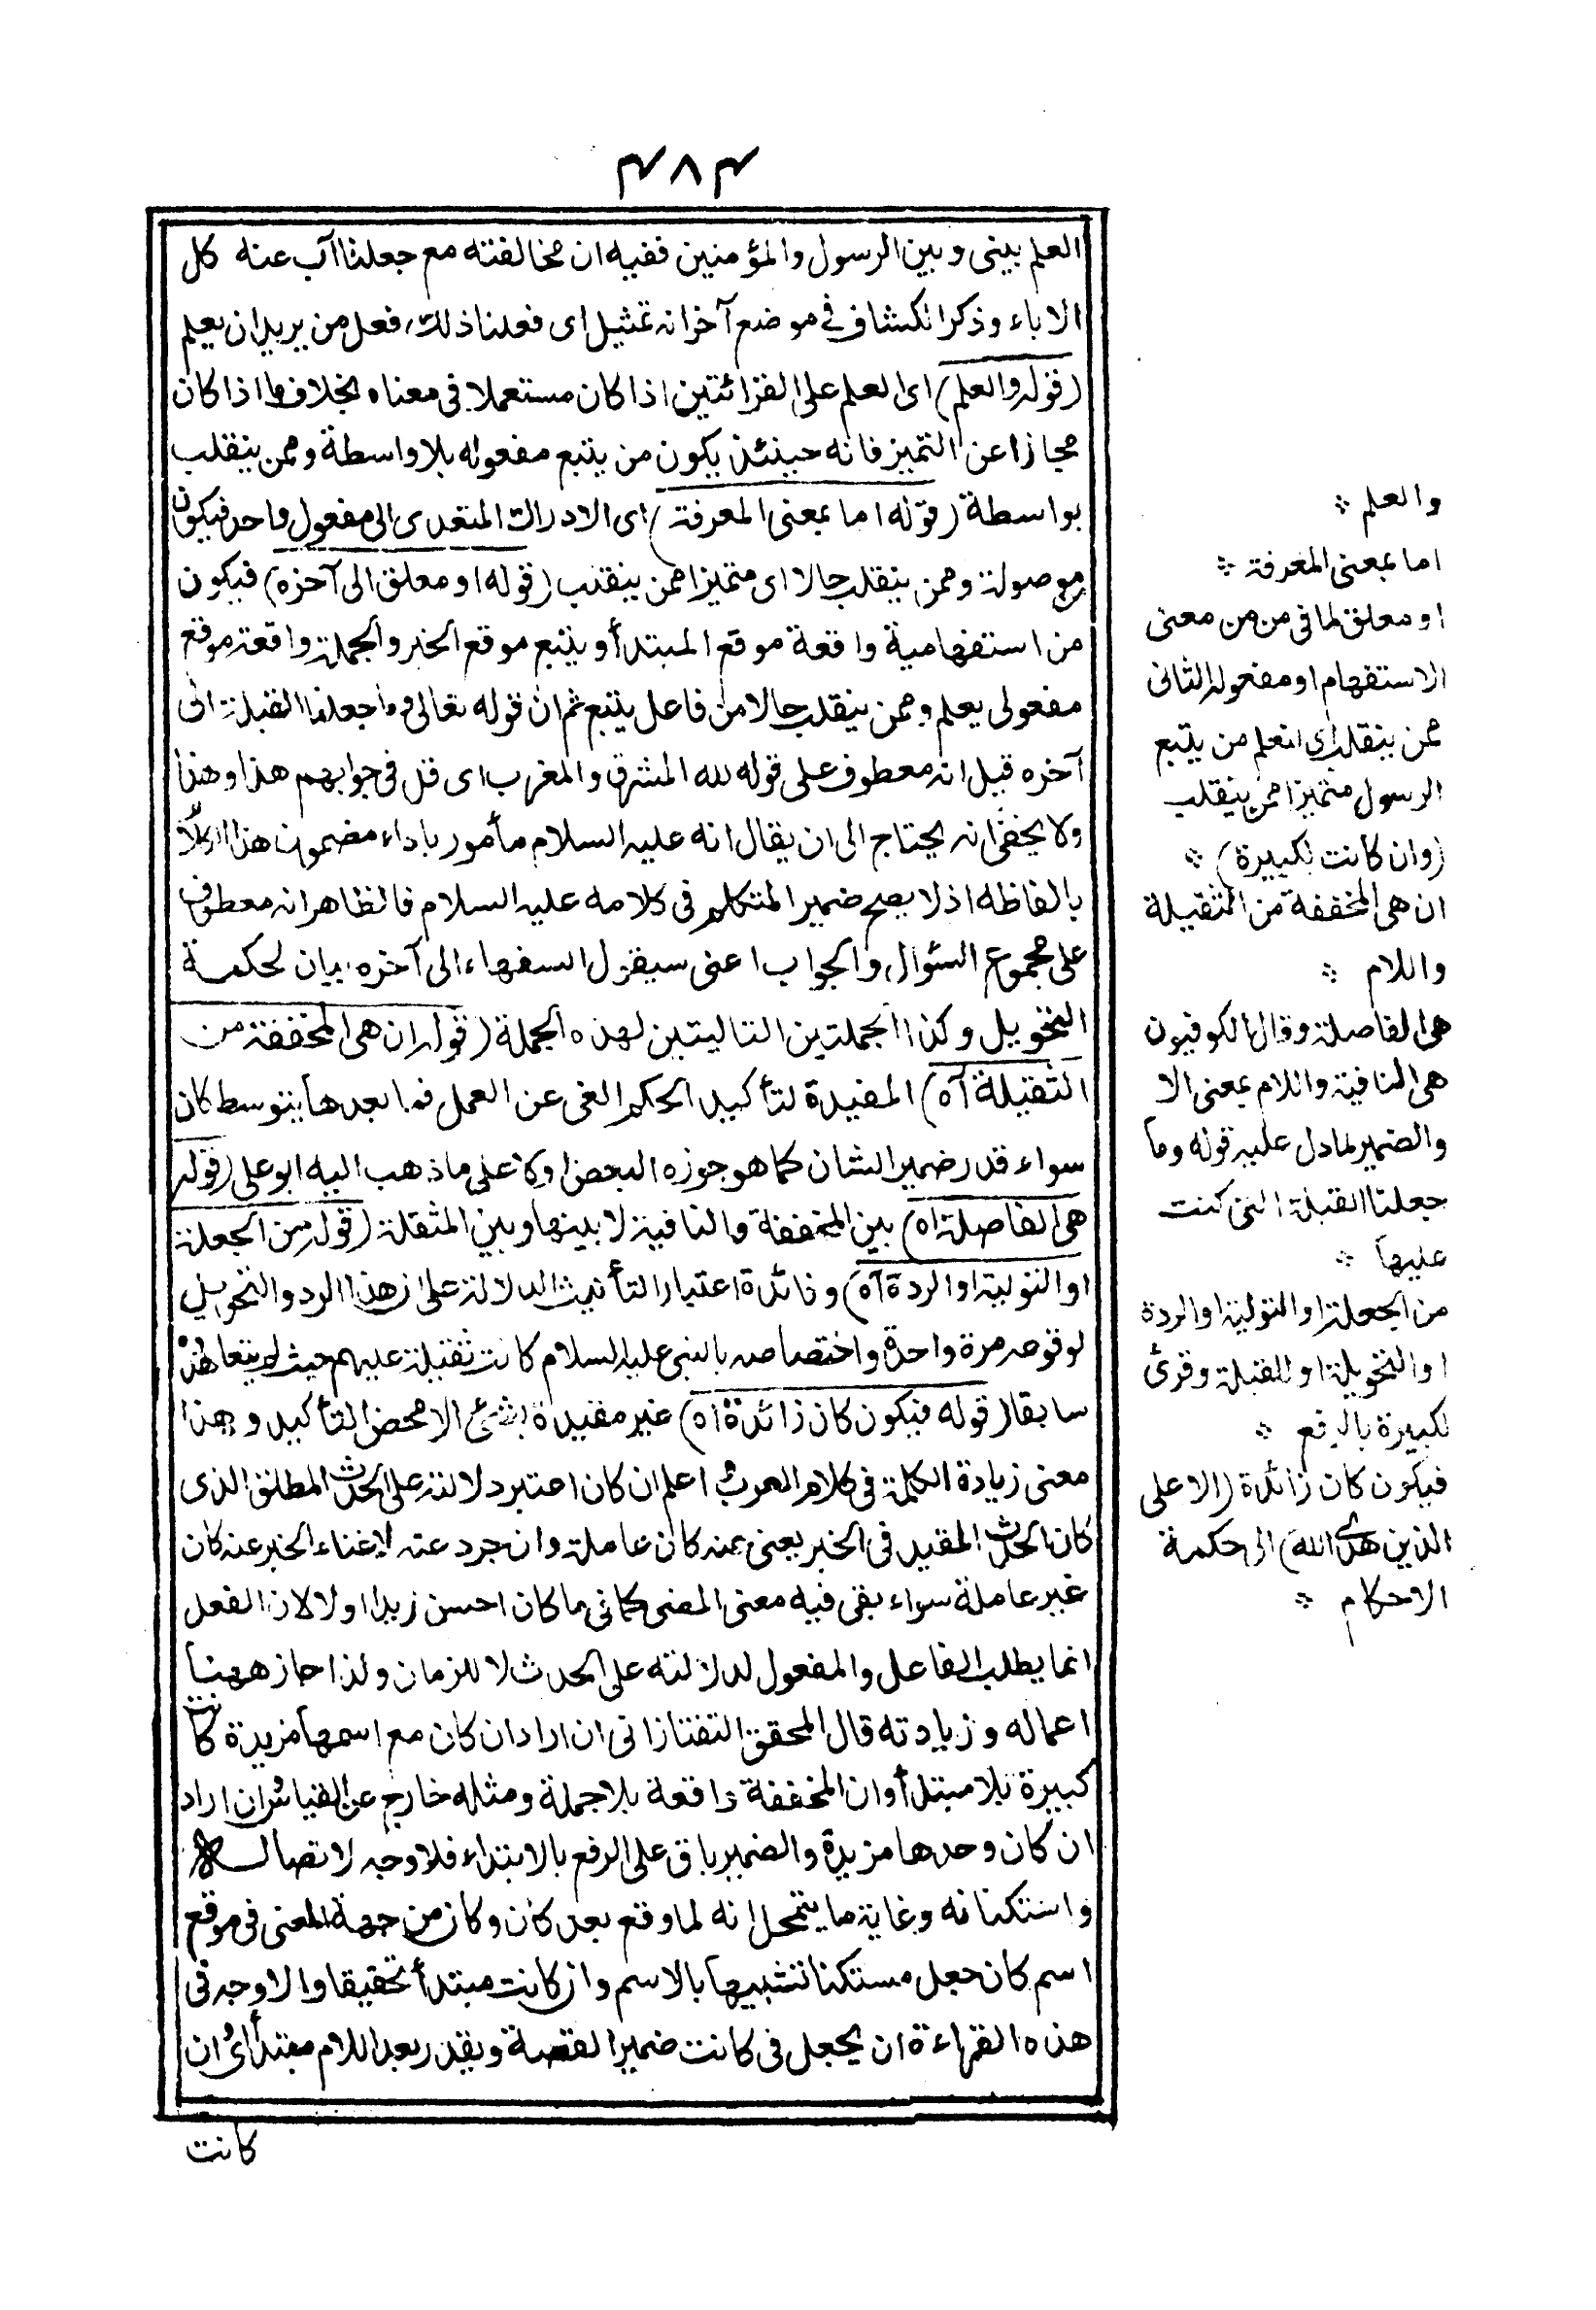 ٤٨٤
العلم بينى وبين الرسول والمؤمنين ففيه ان مخالفته مع جعلنا آب عنه كل
الاباء وذكر الكشاف في موضع آخر انه تمثيل اى فعلنا ذلك فعل من يريد ان يعلم
(قوله والعلم) اى العلم على القرائتين اذا كان مستعملا فى معناه بخلاف ما اذا كان
مجازا عن التميز فانه حينئذ يكون من يتبع مفعوله بلا واسطة وممن ينقلب
بواسطة (قوله اما بمعنى المعرفة) اى الادراك المتعدى الى مفعول واحد فيكون
موصولة وممن ينقلب حالا اى متميزا ممن ينقلب (قوله او معلق الى آخره) فيكون
من استفهامية واقعة موقع المبتدأ ويتبع موقع الخبر والجملة واقعة موقع
مفعولى يعلم وممن ينقلب حالا من فاعل يتبع ثم ان قوله تعالى وما جعلنا القبلة الى
آخره قيل انه معطوف على قوله لله المشرق والمغرب اى قل فى جوابهم هذا وهذا
ولا يخفى انه يحتاج الى ان يقال انه عليه السلام مأمور باداء مضمون هذا الكلام
بالفاظه اذ لا يصح ضمير المتكلم فى كلامه عليه السلام فالظاهر انه معطوف
على مجموع السئوال والجواب اعنى سيقول السفهاء الى آخره بيان لحكمة
التحويل وكذا الجملتين التاليتين لهذه الجملة (قوله ان هى المخففة من
الثقيلة آه) المفيدة لتأكيد الحكم الغى عن العمل فما بعدها بتوسط كان
سواء قدر ضمير الشان كما هو جوزه البعض اولا على ما ذهب اليه ابو على (قوله
هى الفاصلة اه) بين المخففة والنافية لا بينها وبين المثقلة (قوله من الجعلة
او التولية او الردة آه) وفائدة اعتبار التأنيث الدلالة على ان هذا الرد والتحويل
لوقوعه مرة واحدة واختصاصه بالنبى عليه السلام كانت ثقيلة عليهم حيث لم يتعاهدوه
سابقا (قوله فيكون كان زائدة اه) غير مفيدة بشئ الا محض التأكيد وهذا
معنى زيادة الكلمة فى كلام العرب اعلم ان كان اعتبر دلالته على الحدث المطلق الذى
كان الحدث المقيد فى الخبر يعنى عنه كان عاملة وان جرد عنه لاغناء الخبر عنه كان
غير عاملة سواء بقى فيه معنى المضى كما فى ما كان احسن زيدا اولا لان الفعل
انما يطلب الفاعل والمفعول لدلالته على الحدث لا للزمان ولذا جاز ههنا
اعماله وزيادته قال المحقق التفتازانى ان اراد ان كان مع اسمها مزيدة كانت
كبيرة بلا مبتدأ وان المخففة واقعة بلا جملة ومثله خارج عن القياس وان اراد
ان كان وحدها مزيدة والضمير باق على الرفع بالابتداء فلا وجه لاتصاله
واستكنانه وغاية ما يتمحل انه لما وقع بعد كان وكان من جهة المعنى فى موقع
اسم كان جعل مستكنا تشبيها بالاسم وان كانت مبتدأ تحقيقا والاوجه فى
هذه القراءة ان يجعل فى كانت ضمير القصة ويقدر بعد اللام مبتدأ اى ان
كانت
والعلم
اما بمعنى المعرفة
او معلق لما فى من من معنى
الاستفهام او مفعوله الثانى
ممن ينقلب اى لنعلم من يتبع
الرسول متميزا ممن ينقلب
(وان كانت لكبيرة)
ان هى المخففة من الثقيلة
واللام
هى الفاصلة وقال الكوفيون
هى النافية واللام بمعنى الا
والضمير لما دل عليه قوله وما
جعلنا القبلة التى كنت
عليها
من الجعلة او التولية او الردة
او التحويلة او للقبلة وقرئ
لكبيرة بالرفع
فيكون كان زائدة (الا على
الذين هدى الله) الى حكمة
الاحكام